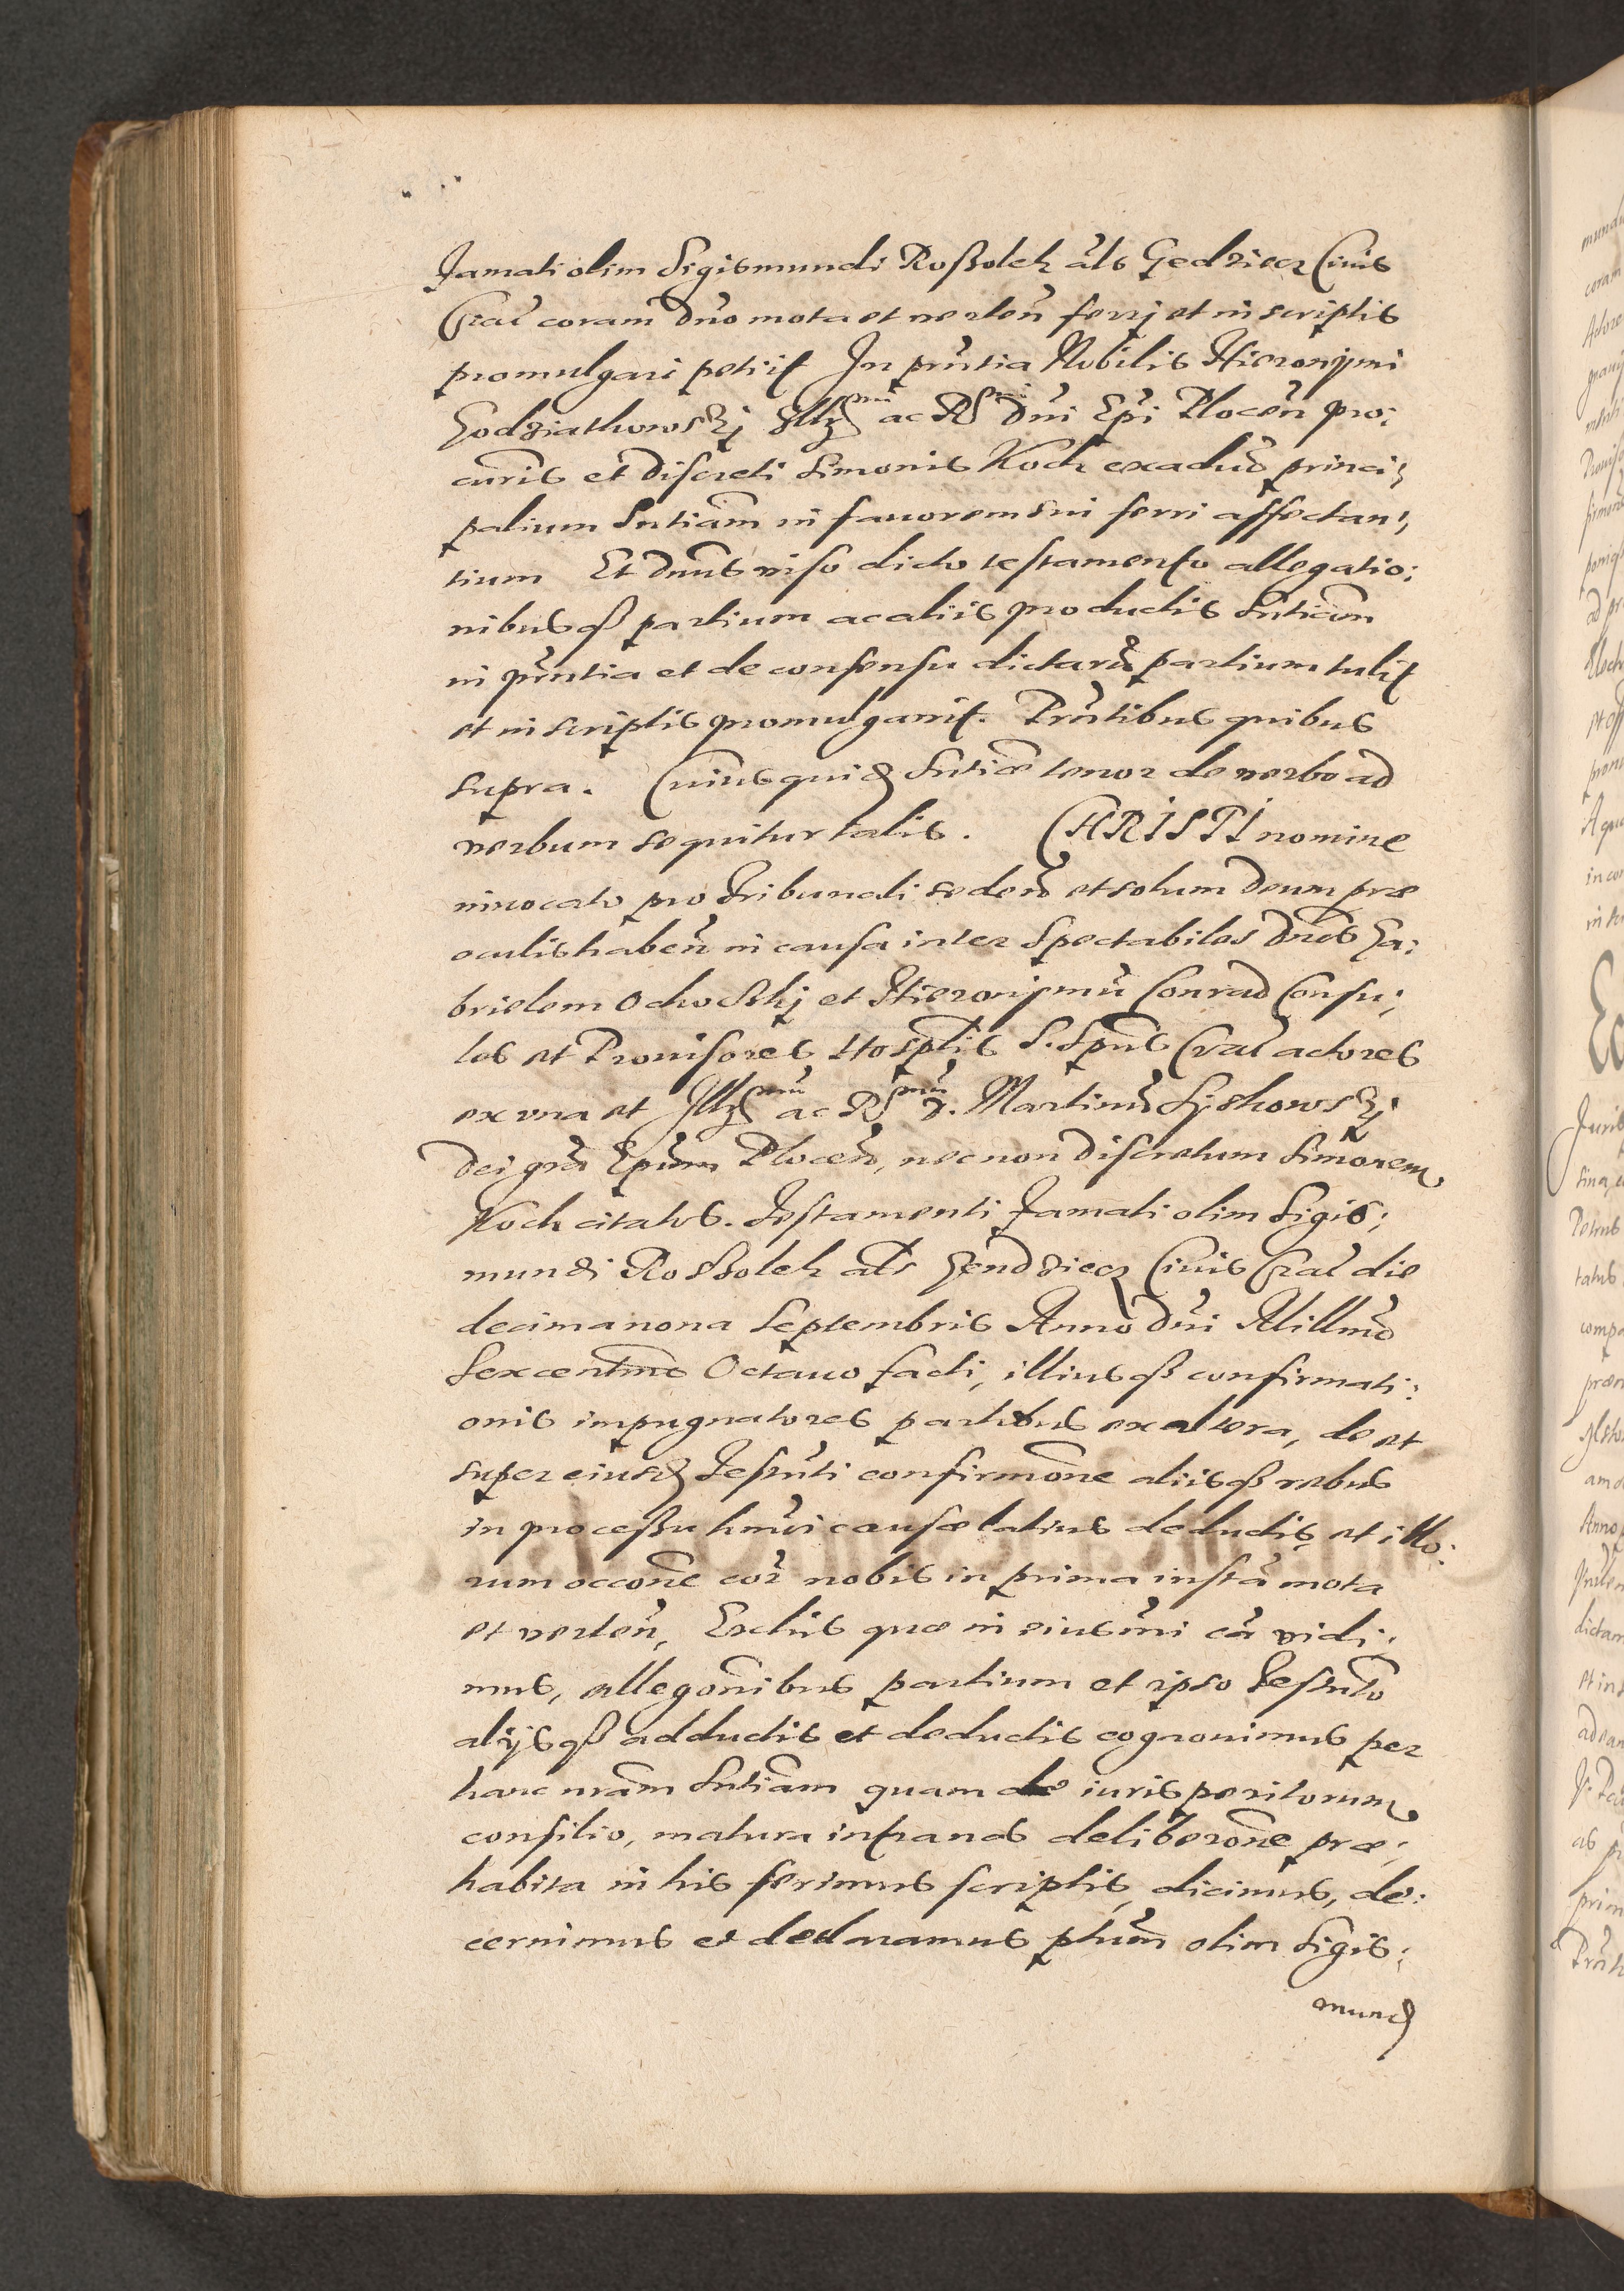 Famati olim Sigismundi Roßolek als Gedziecz Ciuis
Crac coram Dno mota et verten ferrj et in scriptis
promulgari petiit In pntia Nobilis Hieronymi
Godziathowskj Illrmi ac Rmi Dni Epi Plocen pro:
curis et discreti Simonis Koch exaduo princi;
palium Sntiam in fauorem sui ferri affectan;
tium Et Dnus viso dicto testamento allegatio:
nibusqß partium ac aliis productis Sntiam
in pntia et de consensu dictaru partium tulit
et in scriptis promulgauit. Pntibus quibus
supra. Cuiusquid Sntiæ tenor de verbo ad
verbum sequitur talis. CHRISTI nomine
inuocato pro Tribunali seden et solum Deum præ
oculis haben in causa inter Spectabiles Dnos Ga:
brielem Ochoczkj et Hieronymu Conrad Consu;
les et Prouisores Hosptlis S. Spus Crac actores
ex vna et Illrmu ac Rmu D. Martinu Syskowskj
Dei gra Epum Plocen, necnon discretum Simonem
Koch citatos. Testamenti Famati olim Sigis;
mundi Roszolek als Gendziecz Ciuis Crac die
decima nona Septembris Anno Dni Millmo
Sexcentmo Octauo facti, illiusqß confirmati:
onis impugnatores partibus ex altera, de et
super eiusd Testnti confirmone aliisqß rebus
in processu hmoi causæ latius deductis et illo:
rum occone cor nobis in prima insta mota
et verten, Exhis quæ in eiusmi ca vidi:
mus, allegonibus partium et ipso Testnto
alijsqß adductis et deductis cognouimus per
hanc nram Sntiam quam de iuris peritorum
consilio, matura intranos deliberone præ;
habita in his ferimus scriptis, dicimus, de:
cernimus et declaramus pftum olim Sigis:
mund